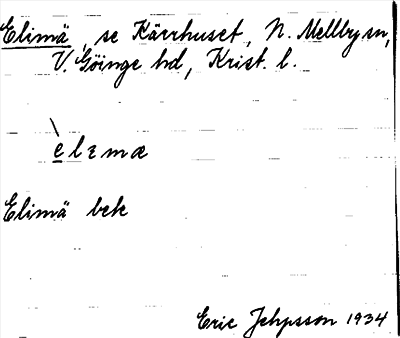 Elimä, se Kärrhuset, N. Mellby sn,
V. Göinge hd, Krist. l.
èlɛmæ
Elimä bek
Eric Jehpsson 1934